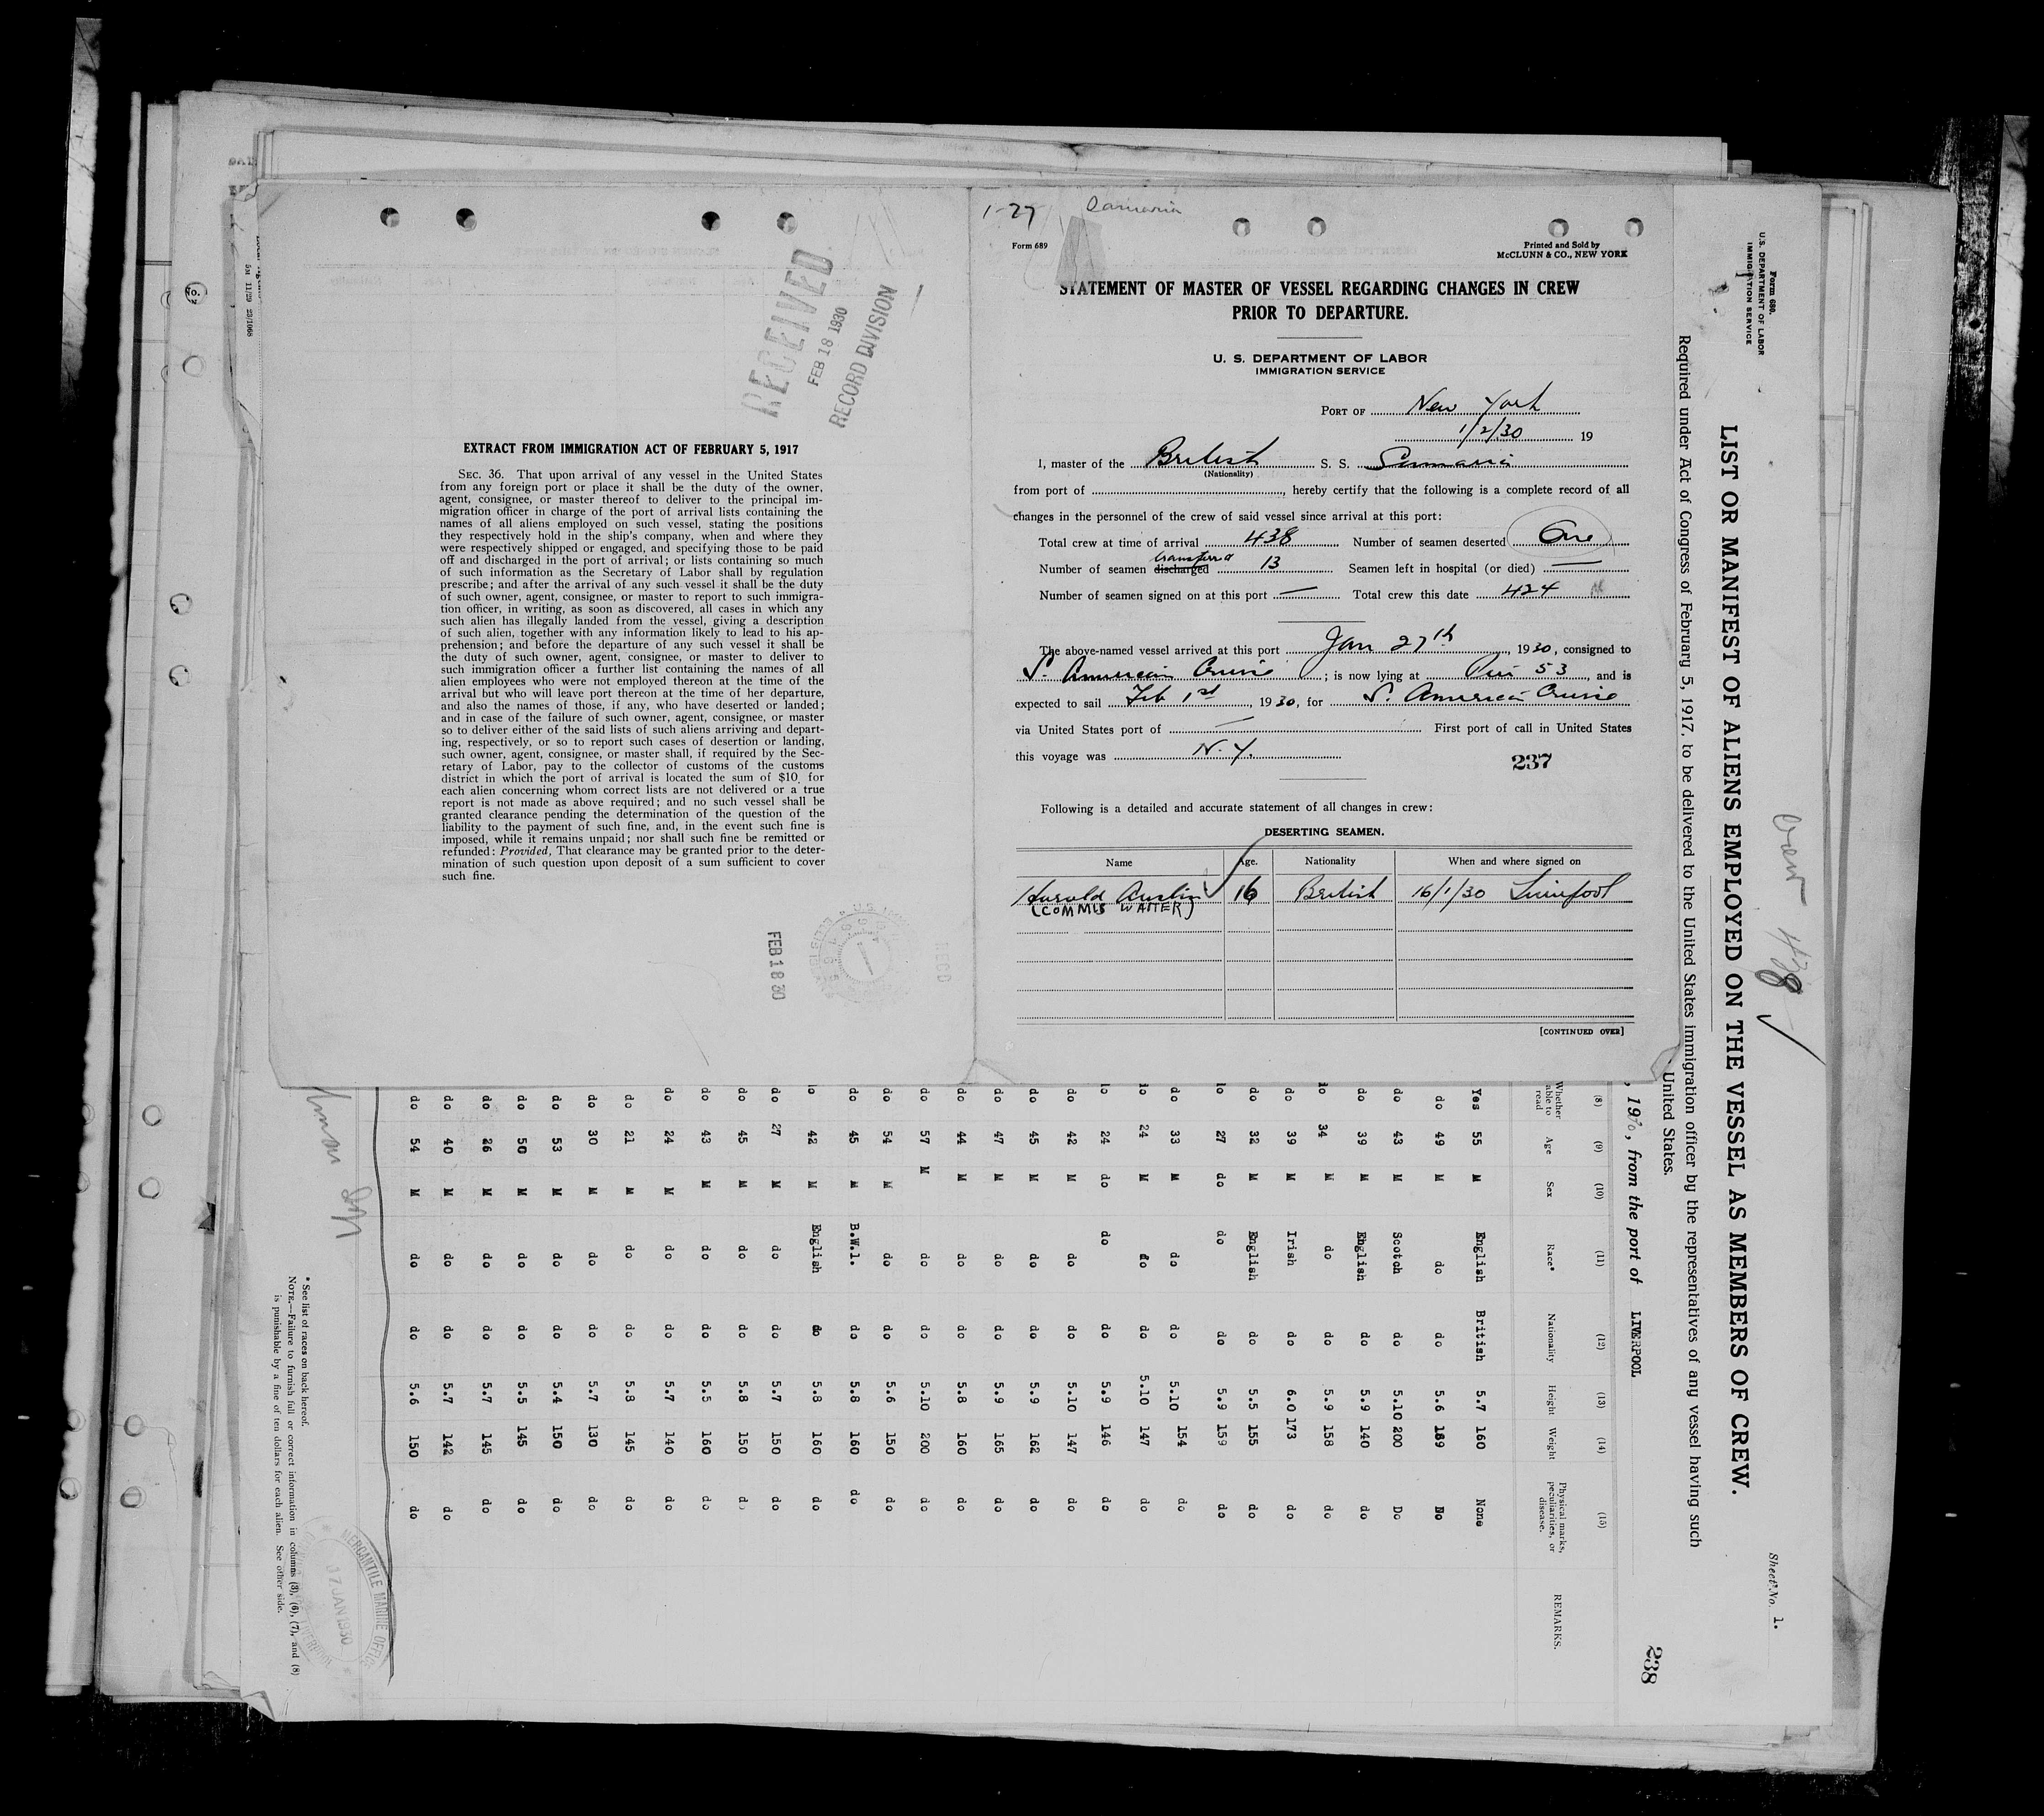 RECEIVED
FEB 18 1930
RECORD DIVISION
EXTRACT FROM IMMIGRATION ACT OF FEBRUARY 5, 1917
SEC. 36. That upon arrival of any vessel in the United States
from any foreign port or place it shall be the duty of the owner,
agent, consignee, or master thereof to deliver to the principal im-
migration officer in charge of the port of arrival lists containing the
names of all aliens employed on such vessel, stating the positions
they respectively hold in the ship's company, when and where they
were respectively shipped or engaged, and specifying those to be paid
off and discharged in the port of arrival; or lists containing so much
of such information as the Secretary of Labor shall by regulation
prescribe; and after the arrival of any such vessel it shall be the duty
of such owner, agent, consignee, or master to report to such immigra-
tion officer, in writing, as soon as discovered, all cases in which any
such alien has illegally landed from the vessel, giving a description
of such alien, together with any information likely to lead to his ap-
prehension; and before the departure of any such vessel it shall be
the duty of such owner, agent, consignee, or master to deliver to
such immigration officer a further list containing the names of all
alien employees who were not employed thereon at the time of the
arrival but who will leave port thereon at the time of her departure,
and also the names of those, if any, who have deserted or landed;
and in case of the failure of such owner, agent, consignee, or master
so to deliver either of the said lists of such aliens arriving and depart-
ing, respectively, or so to report such cases of desertion or landing,
such owner, agent, consignee, or master shall, if required by the Sec-
retary of Labor, pay to the collector of customs of the customs
district in which the port of arrival is located the sum of $10 for
each alien concerning whom correct lists are not delivered or a true
report is not made as above required; and no such vessel shall be
granted clearance pending the determination of the question of the
liability to the payment of such fine, and, in the event such fine is
imposed, while it remains unpaid; nor shall such fine be remitted or
refunded: Provided, That clearance may be granted prior to the deter-
mination of such question upon deposit of a sum sufficient to cover
such fine.
FEB 18 30
1-27
Form 689
Printed and Sold by
McCLUNN & CO., NEW YORK
STATEMENT OF MASTER OF VESSEL REGARDING CHANGES IN CREW
PRIOR TO DEPARTURE.
U. S. DEPARTMENT OF LABOR
IMMIGRATION SERVICE
PORT OF New York
1/2/30 19
I, master of the British S. S. Samaria
(Nationality)
from port of , hereby certify that the following is a complete record of all
changes in the personnel of the crew of said vessel since arrival at this port:
Total crew at time of arrival 438 Number of seamen deserted One
transferred
Number of seamen discharged 13 Seamen left in hospital (or died) —
Number of seamen signed on at this port — Total crew this date 424
The above-named vessel arrived at this port Jan 27th, 1930, consigned to
S. American Cruise ; is now lying at Pier 53, and is
expected to sail Feb 1st, 1930, for S. American Cruise
via United States port of — First port of call in United States
this voyage was N.Y.
237
Following is a detailed and accurate statement of all changes in crew:
DESERTING SEAMEN.
Name Age. Nationality When and where signed on
Harold Austin 16 British 16/1/30 Liverpool
(COMMIS WAITER)
[CONTINUED OVER]
Form 680.
U.S. DEPARTMENT OF LABOR
IMMIGRATION SERVICE
Crew 438
Sheet No. 1.
LIST OR MANIFEST OF ALIENS EMPLOYED ON THE VESSEL AS MEMBERS OF CREW.
Required under Act of Congress of February 5, 1917, to be delivered to the United States immigration officer by the representatives of any vessel having such
United States.
238
, 1930, from the port of LIVERPOOL
(8) (9) (10) (11) (12) (13) (14) (15)
Whether able to read Age Sex Race* Nationality Height Weight Physical marks, peculiarities, or disease. REMARKS.
Yes 55 M English British 5.7 160 None
do 49 M do do 5.6 189 No
do 43 M Scotch do 5.10 200 Do
do 39 M English do 5.9 140 do
do 34 M do do 5.9 158 do
do 39 M Irish do 6.0 173 do
do 32 M English do 5.5 155 do
do 27 do do do 5.9 159 do
do 33 M do do 5.10 154 do
do 24 M do do 5.10 147 do
do 24 do do do 5.9 146 do
do 42 M do do 5.10 147 do
do 45 M do do 5.9 162 do
do 47 M do do 5.9 165 do
do 44 M do do 5.8 160 do
do 57 M do do 5.10 200 do
do 54 M do do 5.6 150 do
do 45 M B.W.I. do 5.8 160 do
do 42 M English do 5.8 160 do
do 27 M do do 5.7 150 do
do 45 M do do 5.8 150 do
do 43 M do do 5.5 160 do
do 24 M do do 5.7 140 do
do 21 M do do 5.8 145 do
do 30 M do do 5.7 130 do
do 53 M do do 5.4 150 do
do 50 M do do 5.5 145 do
do 26 M do do 5.7 145 do
do 40 M do do 5.7 142 do
do 54 M do do 5.6 150 do
* See list of races on back hereof.
NOTE.—Failure to furnish full or correct information in columns (3), (6), (7), and (8)
is punishable by a fine of ten dollars for each alien. See other side.
MERCANTILE MARINE OFFICE
17 JAN 1930
LIVERPOOL
5M 11/29 23/1068